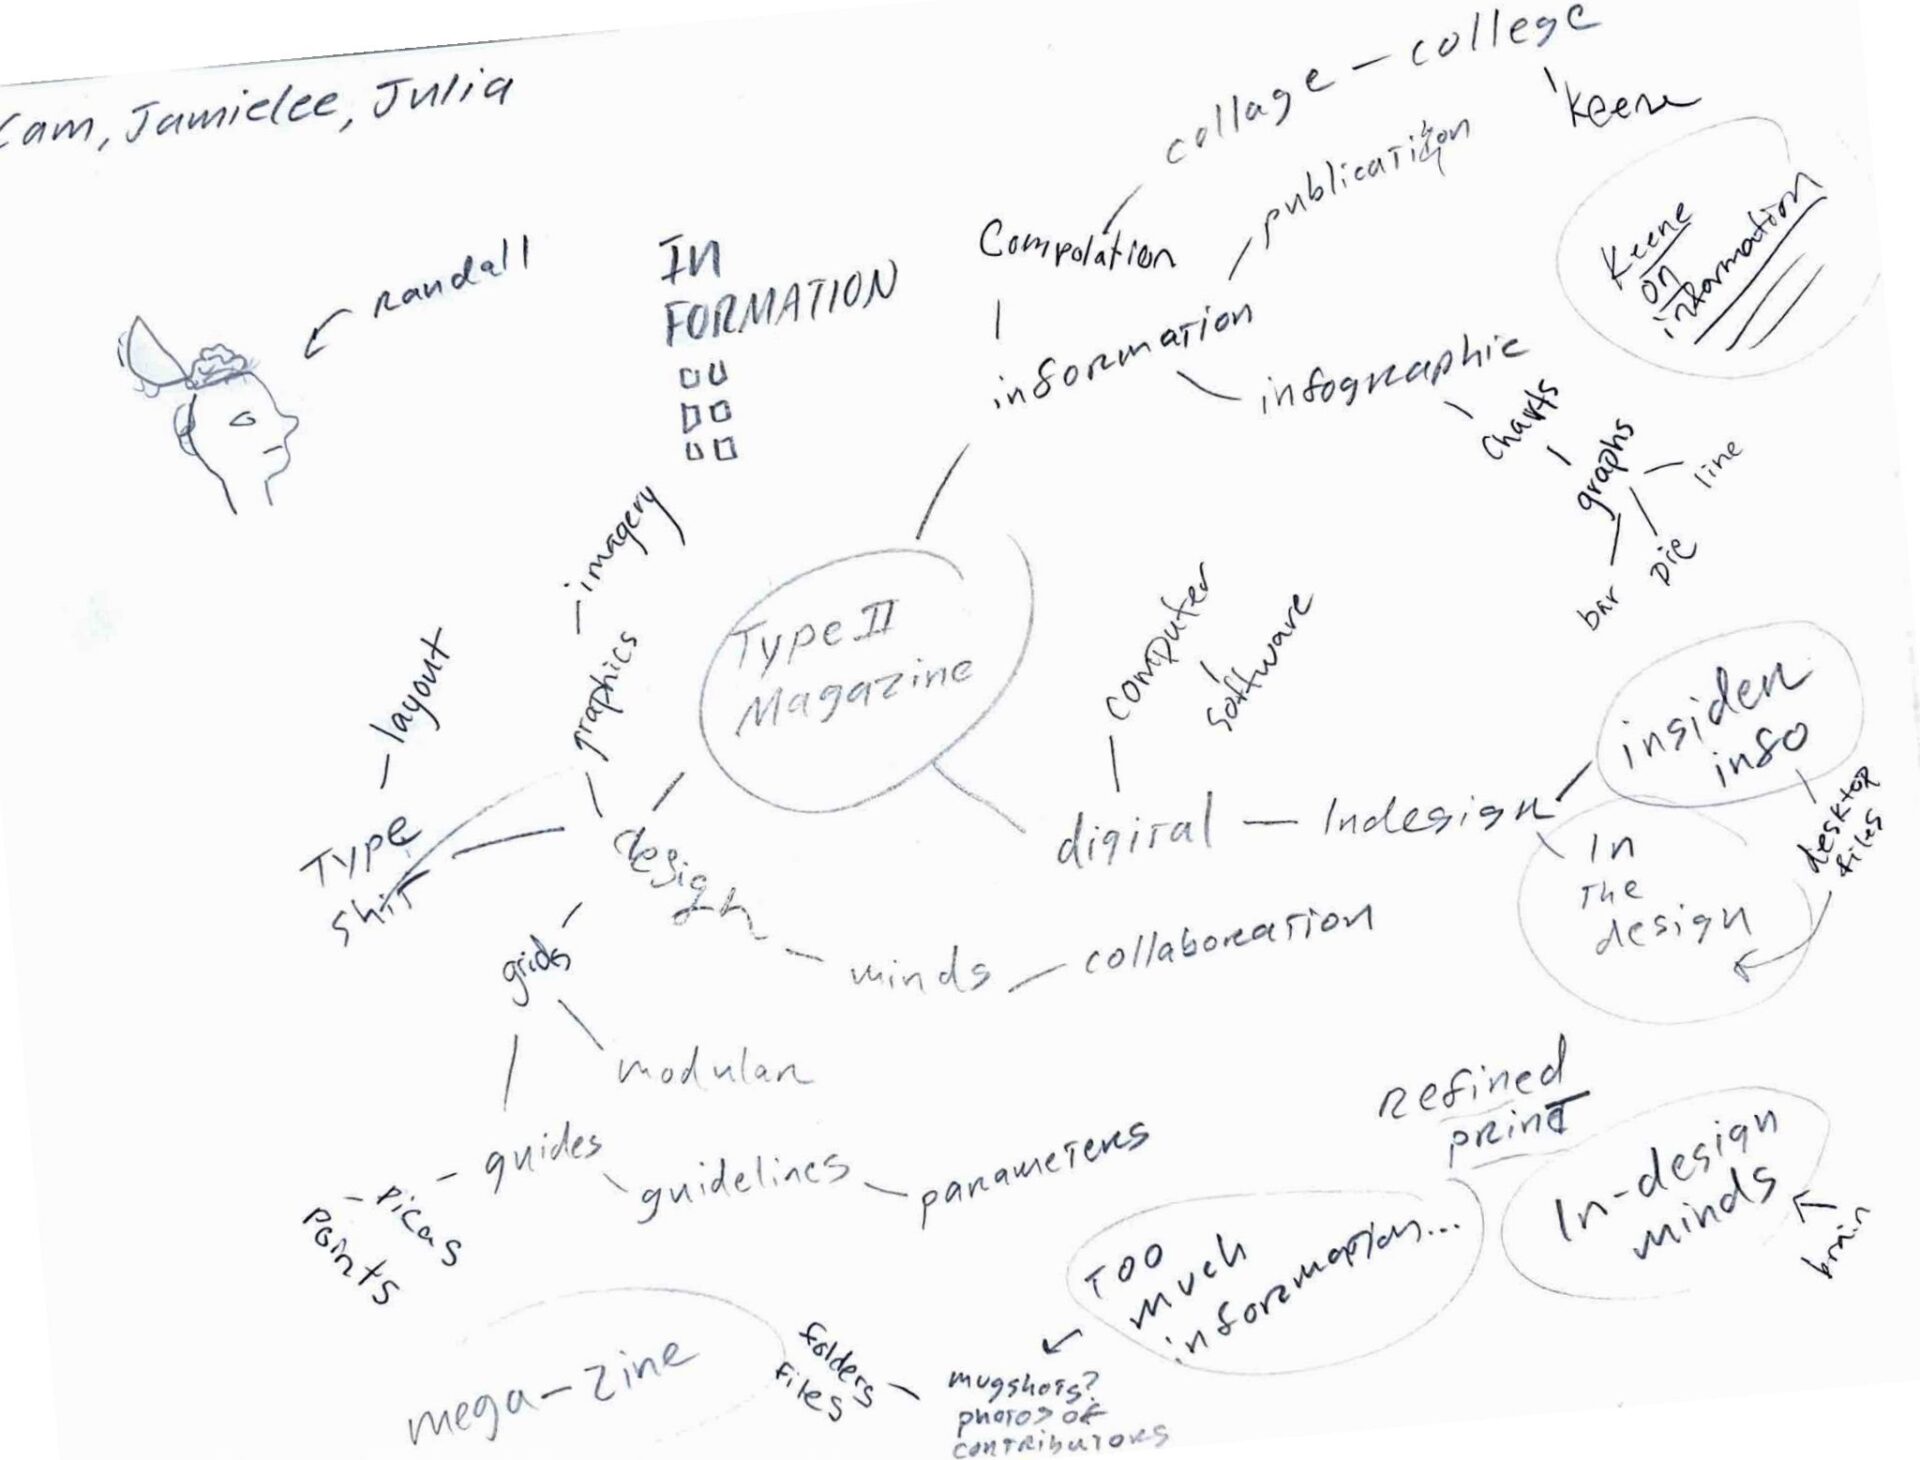 Cam, Jamielee, Julia
collage – college
Keene
publication
Compolation
randall
IN
FORMATION
Keene
on
information
information
infographic
charts
graphs
line
pie
bar
imagery
graphics
layout
Type II
Magazine
computer
software
insider
info
desktop
files
Type
shit
design
digital – Indesign
In
The
design
grids
minds – collaboration
modular
guides
guidelines – parameters
picas
points
Refined
print
In-design
minds
brain
Too
much
information...
mega-zine
folders
files
mugshots?
photos of
contributors